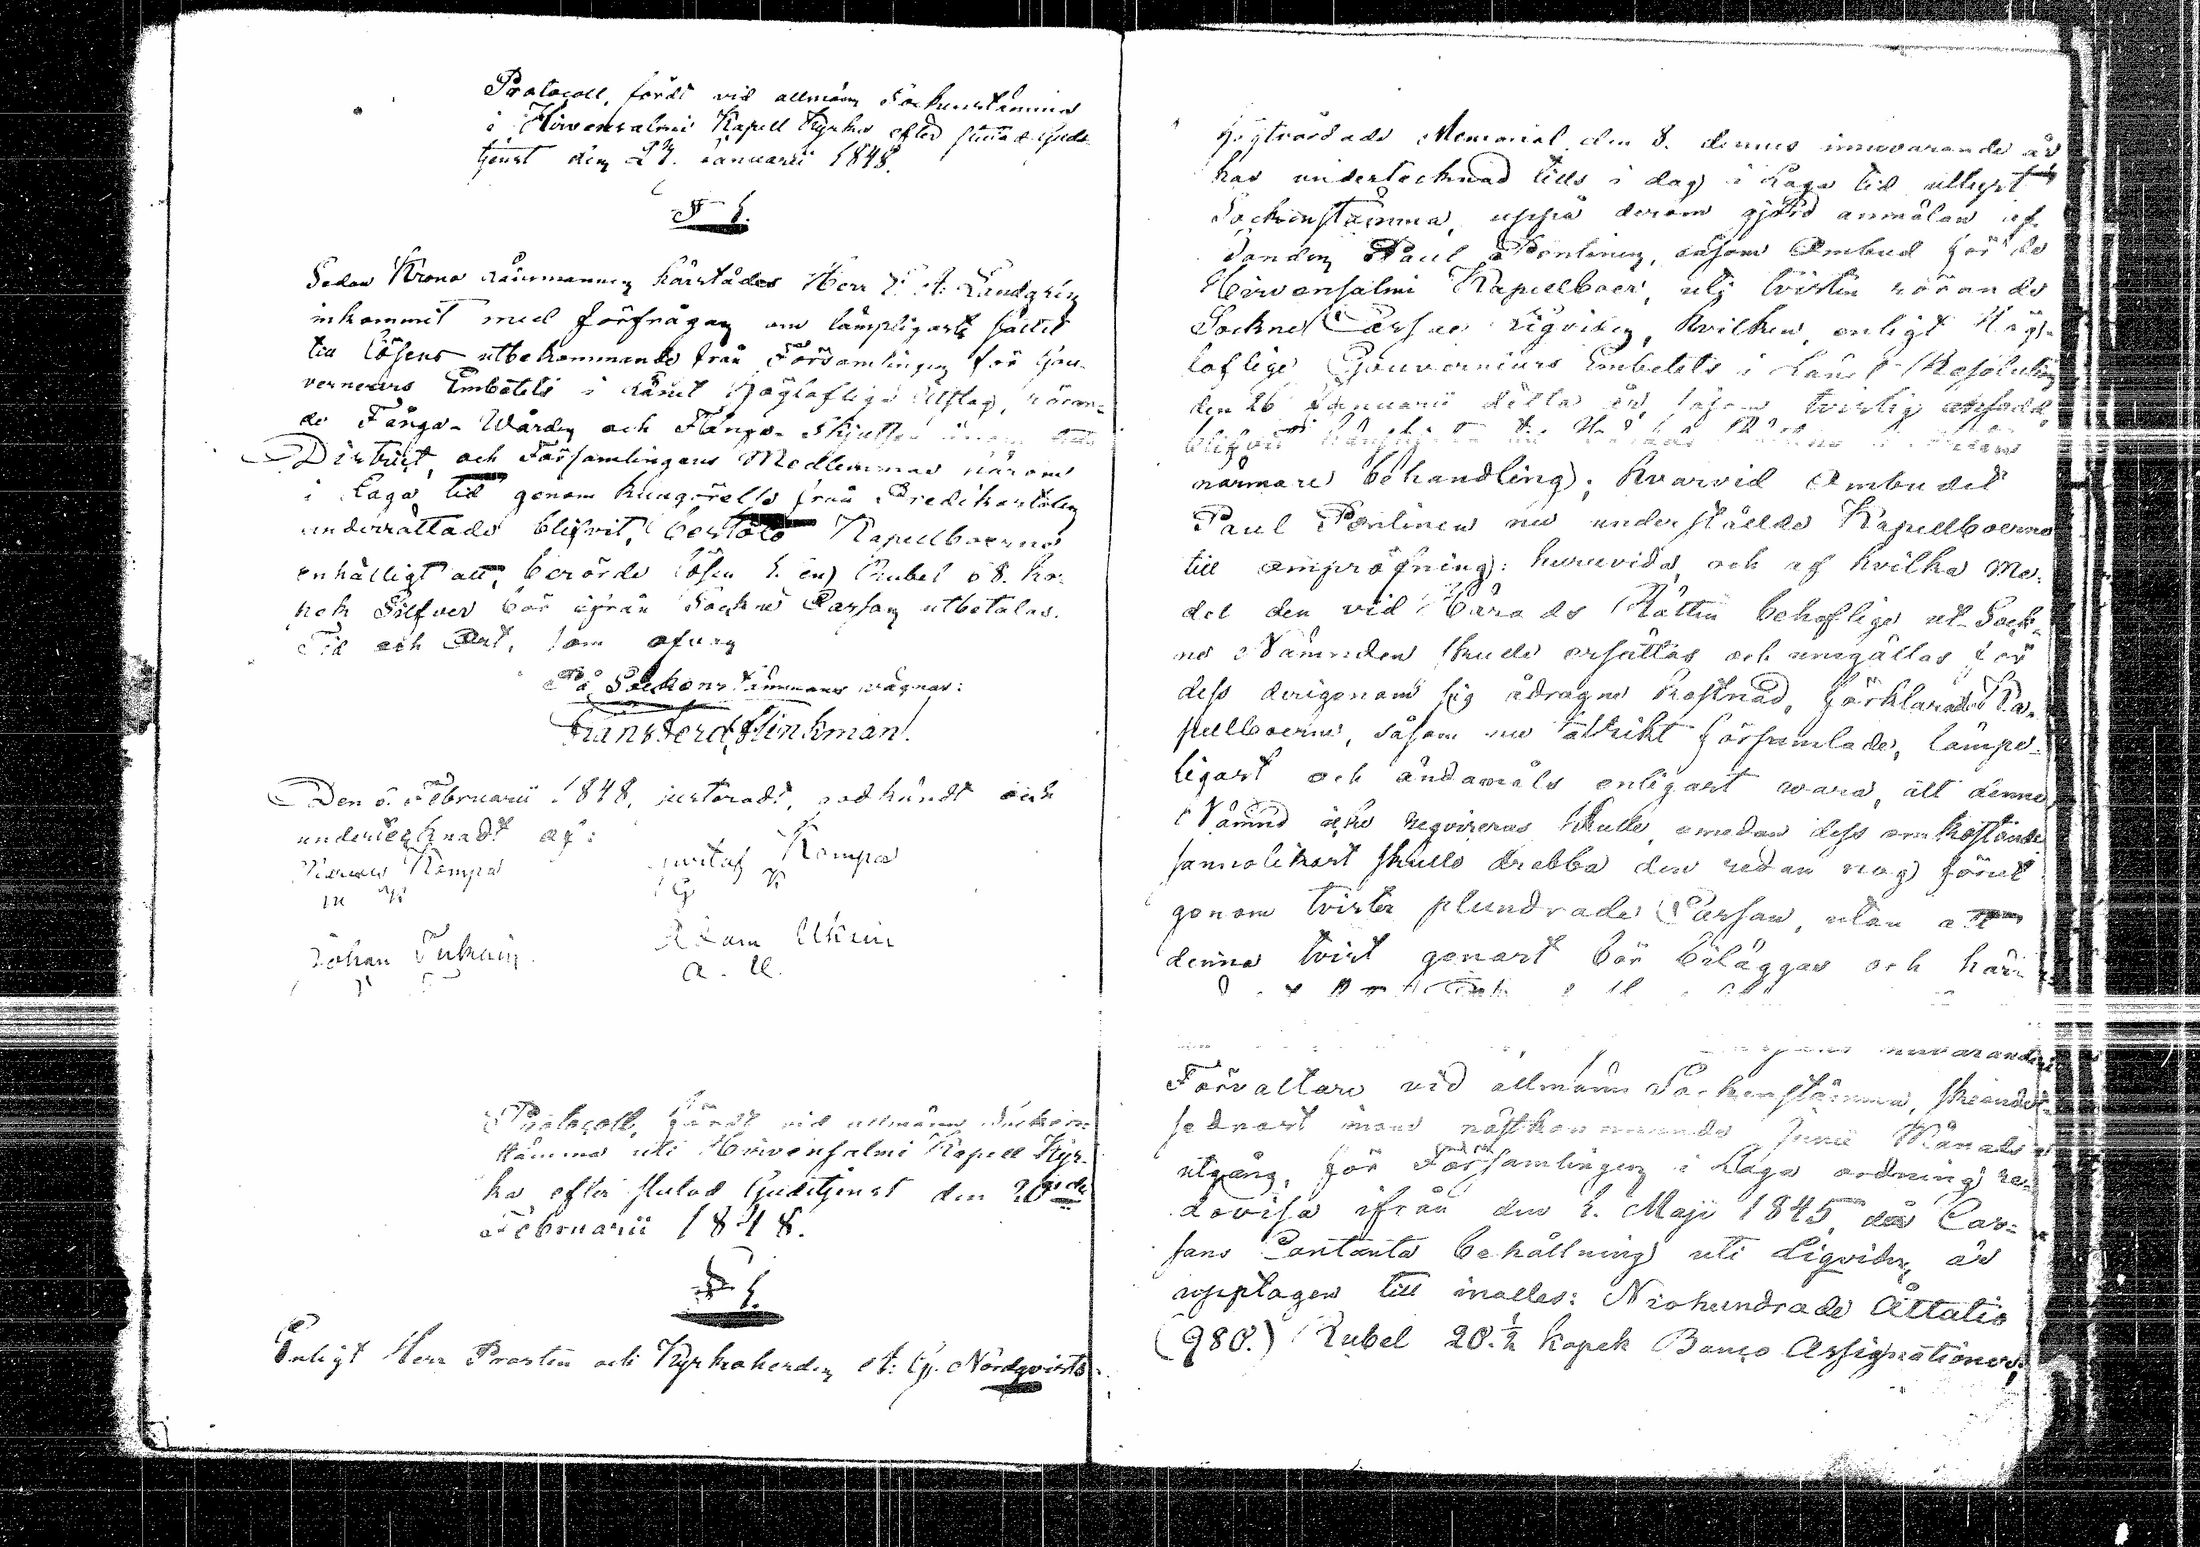 Protocoll, fördt vid allmän Sockenstämma
i Hirvensalmi Kapell Kyrka efter slutad Guds
tjenst den 27. Januarii 1848.
§ 1.
Sedan Krono Länsmannen härstädes Herr E. A. Landgrén
inkommit med förfrågan om lämpligaste sättet
till lösens utbekommande från Församlingen för Gou-
verneurs Embetets i Länet Höglofliga Utslag, röran-
de Fånge-Wården och Fånge-Skjutsen
District, och Församlingens Medlemmar härom
i Laga tid genom kungörelse från Predikostolen
underrättade blifvit, bestöto Kapellboerne
enhälligt att, berörde lösen 1. en) Rubel 08. ko-
pek Silfver bör ifrån Sockne Cassan utbetalas.
Tid och Ort, som ofvan
På Sockenstämmans vägnar:
Frans Ferd. Flinkman.
Den 6. Februarii 1848, justeradt, godkändt och
undertecknadt af:
Kompa Gustaf Kompa
G K
Johan Adam Ukein
A. U.
Protocoll, fördt vid allmän Socken-
stämma uti Hirvensalmi Kapell Kyr-
ka efter slutad Gudstjenst den 20nde
Februarii 1848.
§ 1.
Enligt Herr Prosten och Kyrkoherden A: G. Nordqvists
Högtvördade Memorial den 8. dennes innevarande år
har undertecknad tills i dag i Laga tid utlyst
Sockenstämma, uppå derom gjord anmälan af
Bonden Paul Pentinen, såsom Ombud för de
Hirvensalmi Kapellboer, uti tvisten rörande
Sockne Cassae Liqviden, hvilken, enligt Hög-
loflige Gouverneurs Embetets i Länet Resolution
den 26 Januarii detta år, såsom tvistig ansedd
blifvit
närmare behandling; hvarvid Ombudet
Paul Pentinen nu underställde Kapellboerne
till ompröfning: huruvida, och af hvilka Me-
del den vid Härads Rätten behöfliga ut-Sock-
ne Nämnden skulle ersättas och umgällas för
dess derigenom sig ådragne kostnad, förklarade Ka-
pellboerne, såsom nu talrikt församlade, lämpe-
ligast och ändamåls enligast wara, att denne
Nämnd icke reqvireras skulle, emedan dess omkostnader
sannolikast skulle drabba den redan nog förut
genom tvister plundrade Cassan, utan att
denna tvist genast bör biläggas och här-
nuvarande
Förvaltare vid allmänn Sockenstämma, skeende
sednast inom nästkommande Junii Månads
utgång, för Församlingen i Laga ordning re-
dovisa ifrån den 1. Maji 1845, då Cas-
sans Contanta behållning uti Liqviden är
upptagen till inalles: Niohundrade Åttatio
(980.) Rubel 20.½ kopek Banco Assignationer,